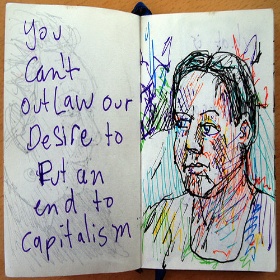 You
Can't
outLaw our
Desire to
Put an
end to
Capitalism